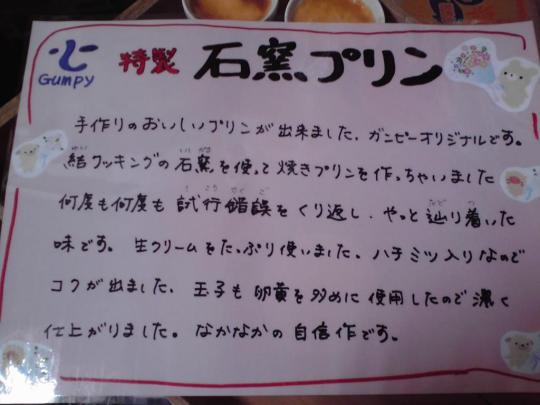 Gumpy
特製 石窯プリン
手作りのおいしいプリンが出来ました。ガンピーオリジナルです。
結クッキングの石窯を使って焼きプリンを作っちゃいました
何度も何度も試行錯誤をくり返し、やっと辿り着いた
味です。生クリームをたっぷり使いました。ハチミツ入りなので
コクが出ました。玉子も卵黄を多めに使用したので濃く
仕上がりました。なかなかの自信作です。